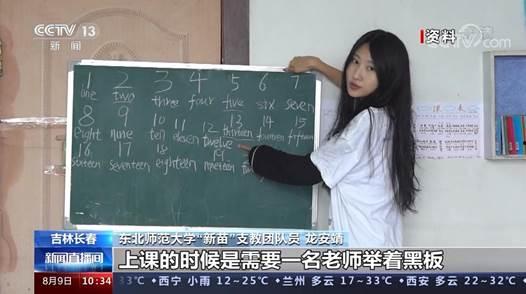 CCTV 13
新闻
资料
CCTV.com
1 2 3 4 5 6 7
one two three four five six seven
8 9 10 11 12 13 14 15
eight nine ten eleven twelve thirteen fourteen fifteen
16 17 18 19
sixteen seventeen eighteen nineteen
吉林长春
东北师范大学“新苗”支教团队员 龙安婧
新闻直播间
上课的时候是需要一名老师举着黑板
8月9日 10:34
西宁 小雨 12~25℃ 兰州 多云 17~33℃ 西安 多云 22~32℃